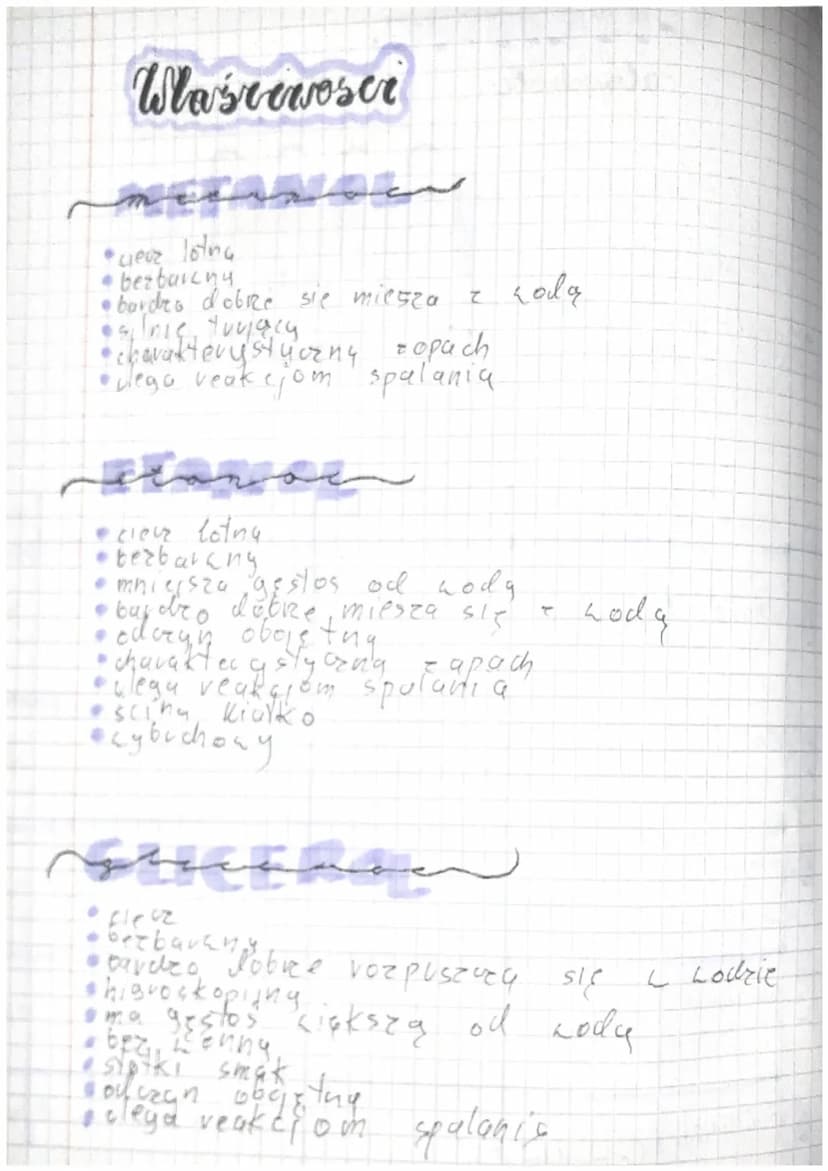 Właściwości
METANOL
• ciecz lotna
• bezbarwny
• bardzo dobrze się miesza z wodą
• silnie trujący
• charakterystyczny zapach
• ulega reakcjom spalania
ETANOL
• ciecz lotna
• bezbarwny
• mniejsza gęstos od wody
• bardzo dobrze miesza się z wodą
• odczyn obojętny
• charakterystyczny zapach
• ulega reakcjom spalania
• ścina białko
• wybuchowy
GLICEROL
• ciecz
• bezbarwny
• bardzo dobrze rozpuszczy się w wodzie
• higroskopijny
• ma gęstos większą od wody
• bezwonny
• słotki smak
• odczyn obojętny
• ulega reakcjom spalania